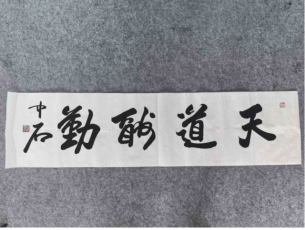 天道酬勤
中石